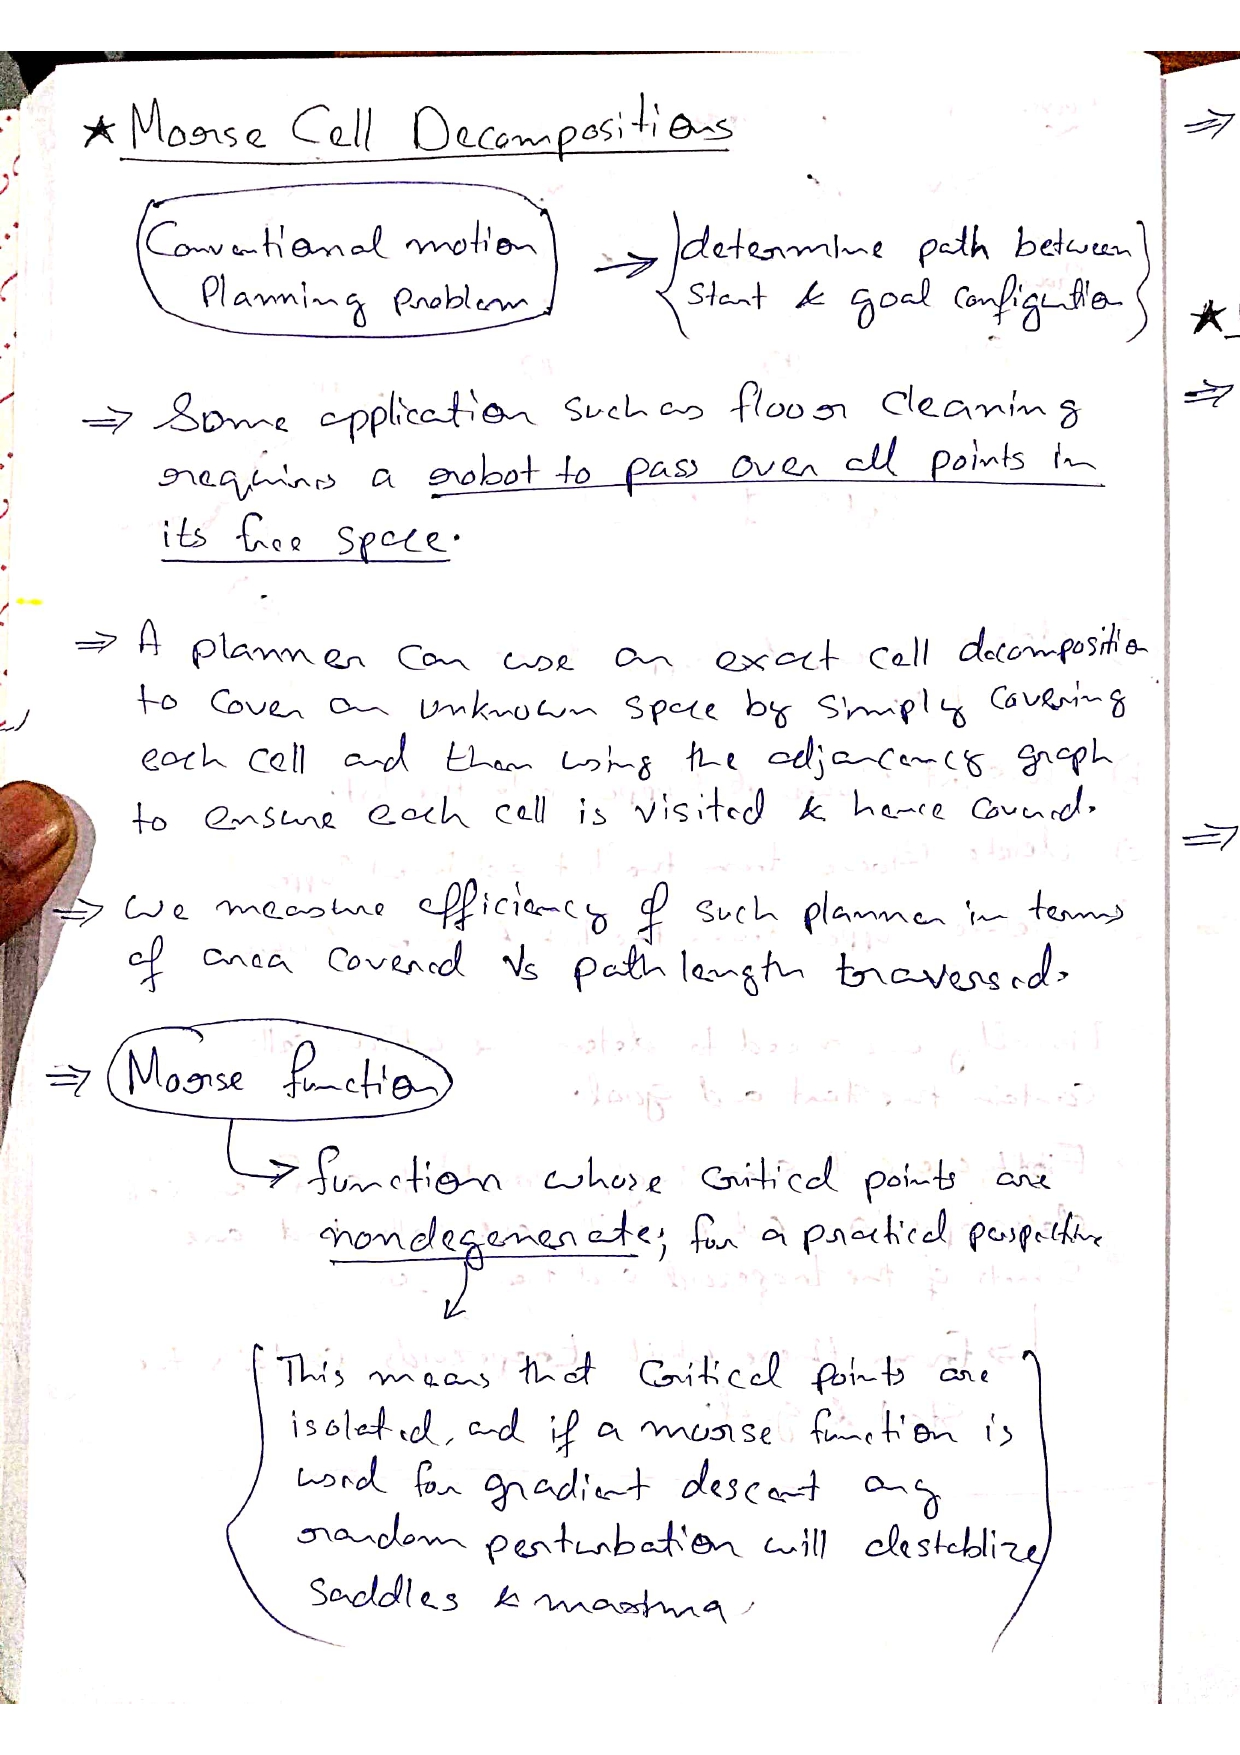 ★ Morse Cell Decompositions
Conventional motion
Planning Problem
→ {determine path between
start & goal configuration}
⇒ Some application such as floor cleaning
requires a robot to pass over all points in
its free space.
⇒ A planner can use an exact cell decomposition
to cover an unknown space by simply covering
each cell and then using the adjancency graph
to ensure each cell is visited & hence covered.
⇒ we measure efficiency of such planner in terms
of area covered vs path length traversed.
⇒ Morse function
→ function whose critical points are
nondegenerate; for a practical perspective
This means that critical points are
isolated, and if a morse function is
used for gradient descent any
random perturbation will destablize
saddles & maxima.